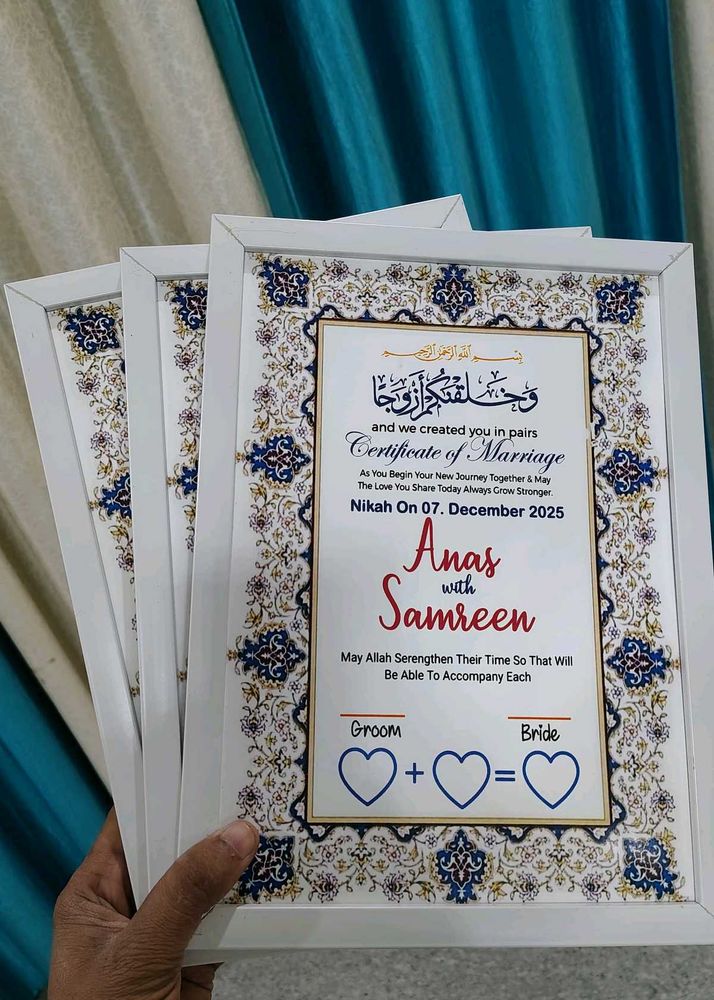 بسم الله الرحمن الرحيم
وخلقنكم أزوجا
and we created you in pairs
Certificate of Marriage
As You Begin Your New Journey Together & May
The Love You Share Today Always Grow Stronger.
Nikah On 07. December 2025
Anas
with
Samreen
May Allah Serengthen Their Time So That Will
Be Able To Accompany Each
Groom Bride
+ =